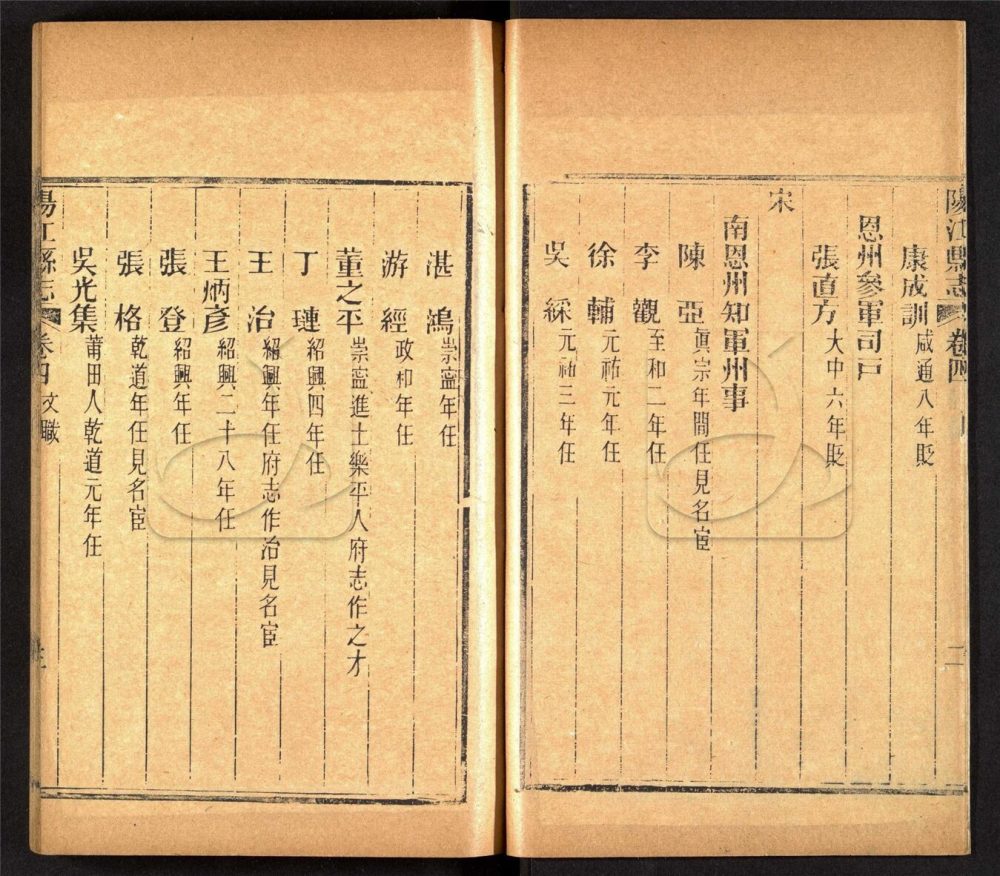 陽江縣志 卷四 二
康成訓 咸通八年貶
恩州參軍司戸
張直方 大中六年貶
宋
南恩州知軍州事
陳亞 眞宗年間任見名宦
李觀 至和二年任
徐輔 元祐元年任
吳綵 元祐三年任
湛鴻 崇寧年任
游經 政和年任
董之平 崇寧進士樂平人府志作之才
丁璉 紹興四年任
王治 紹興年任府志作冶見名宦
王炳彥 紹興二十八年任
張登 紹興年任
張格 乾道年任見名宦
吳光集 莆田人乾道元年任
陽江縣志 卷四 文職